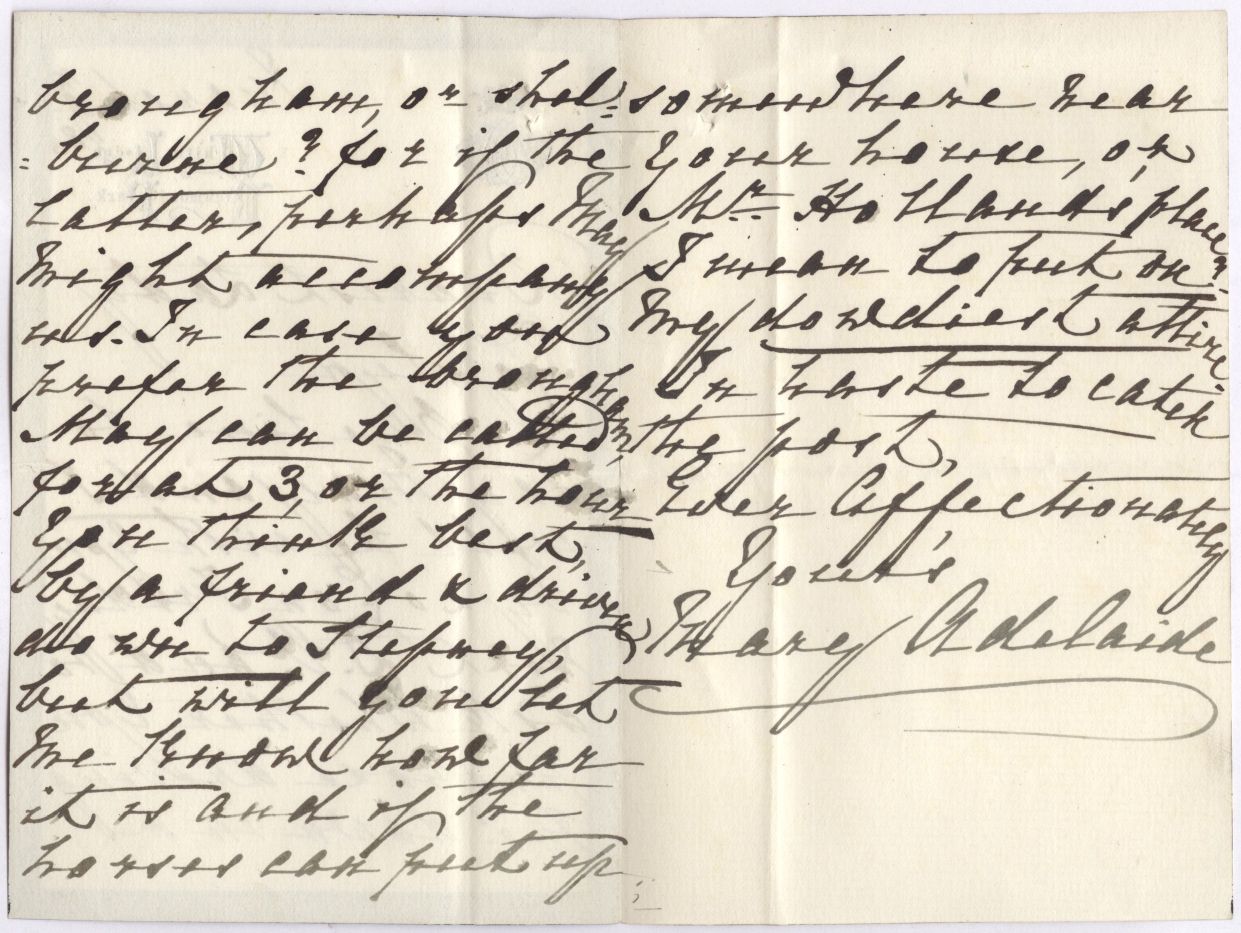 brougham, or shel=
=burne? for if the
latter, perhaps May
might accompany
us. In case you
prefer the brougham,
May can be called
for at 3, or the hour
you think best,
by a friend & driven
down to Stepney,
but will you let
me know how far
it is and if the
horses can put up
somewhere near
your house, or
Mr Holland's place?
I mean to put on
my dowdiest attire.
In haste to catch
the post,
Ever Affectionately
Your's
Mary Adelaide